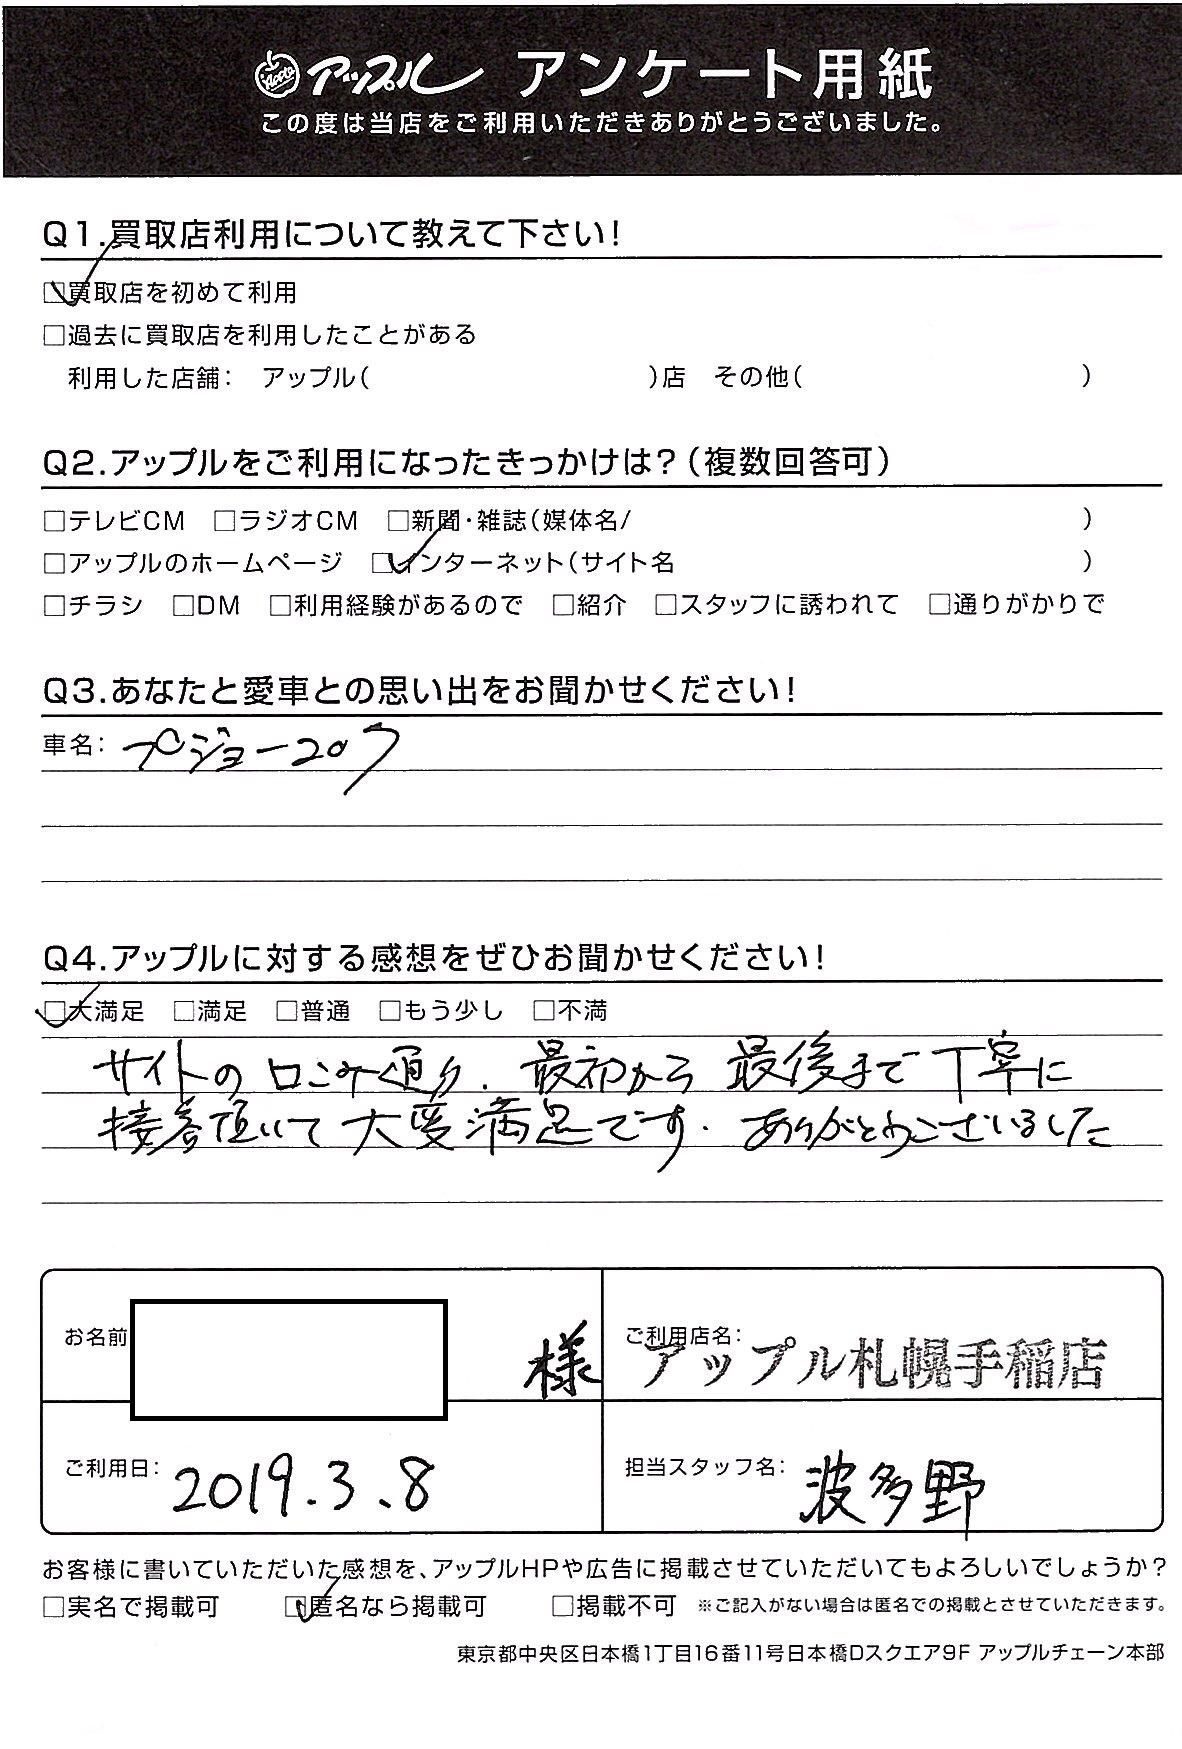 Apple アップル アンケート用紙
この度は当店をご利用いただきありがとうございました。
Q1.買取店利用について教えて下さい!
□買取店を初めて利用
□過去に買取店を利用したことがある
利用した店舗: アップル( )店 その他( )
Q2.アップルをご利用になったきっかけは?(複数回答可)
□テレビCM □ラジオCM □新聞・雑誌(媒体名/ )
□アップルのホームページ □インターネット(サイト名 )
□チラシ □DM □利用経験があるので □紹介 □スタッフに誘われて □通りがかりで
Q3.あなたと愛車との思い出をお聞かせください!
車名: プジョー207
Q4.アップルに対する感想をぜひお聞かせください!
□大満足 □満足 □普通 □もう少し □不満
サイトの口コミ通り、最初から最後まで丁寧に
接客頂いて大変満足です。ありがとうございました
お名前 様
ご利用店名:
アップル札幌手稲店
ご利用日: 2019.3.8
担当スタッフ名: 波多野
お客様に書いていただいた感想を、アップルHPや広告に掲載させていただいてもよろしいでしょうか?
□実名で掲載可 □匿名なら掲載可 □掲載不可 ※ご記入がない場合は匿名での掲載とさせていただきます。
東京都中央区日本橋1丁目16番11号日本橋Dスクエア9F アップルチェーン本部